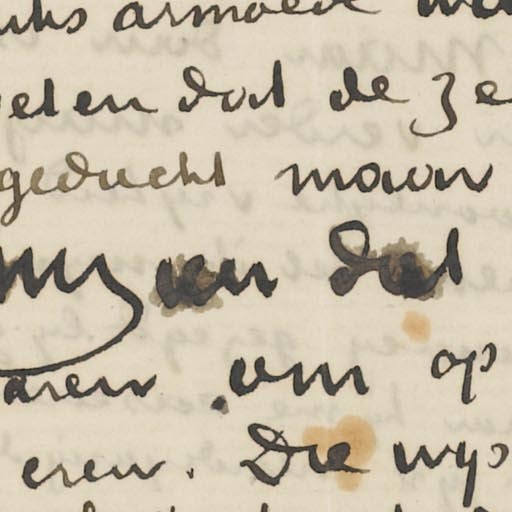 armoede
eten dat de ze
geducht maar
en dat
aren om op
eren. Die wijs